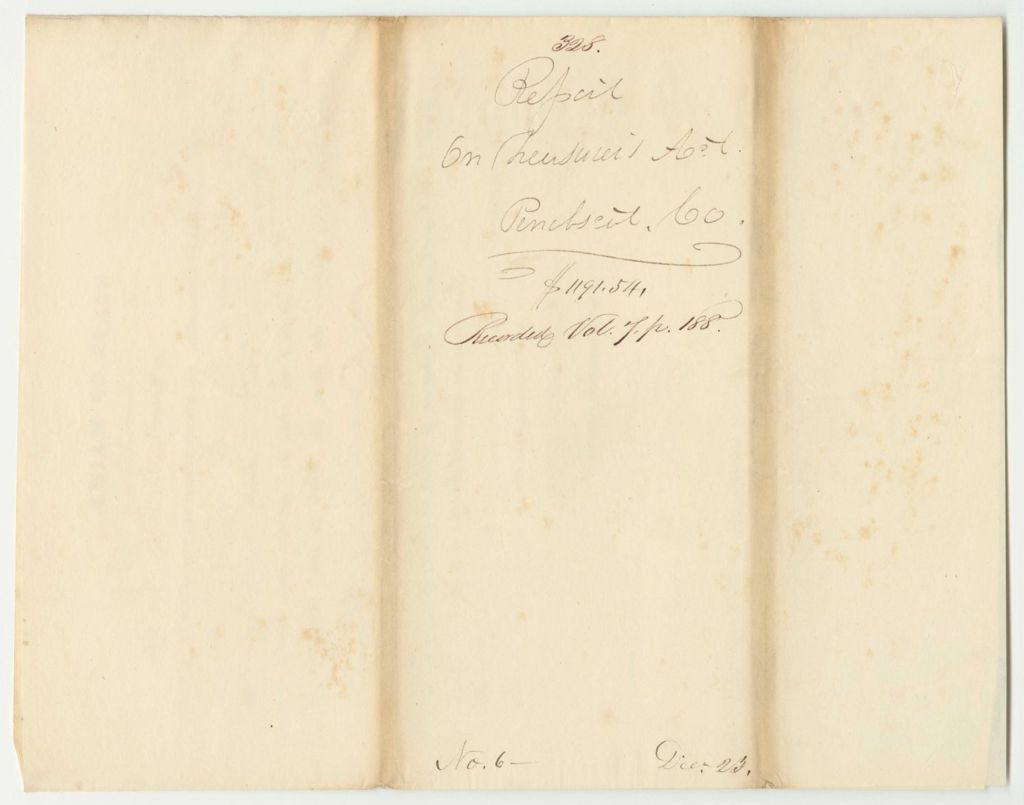 328.
Report
On Treasurer's Acct.
Penobscot. Co.
$1191.54.
Recorded Vol. 7. p. 188.
No. 6—
Dec. 23.